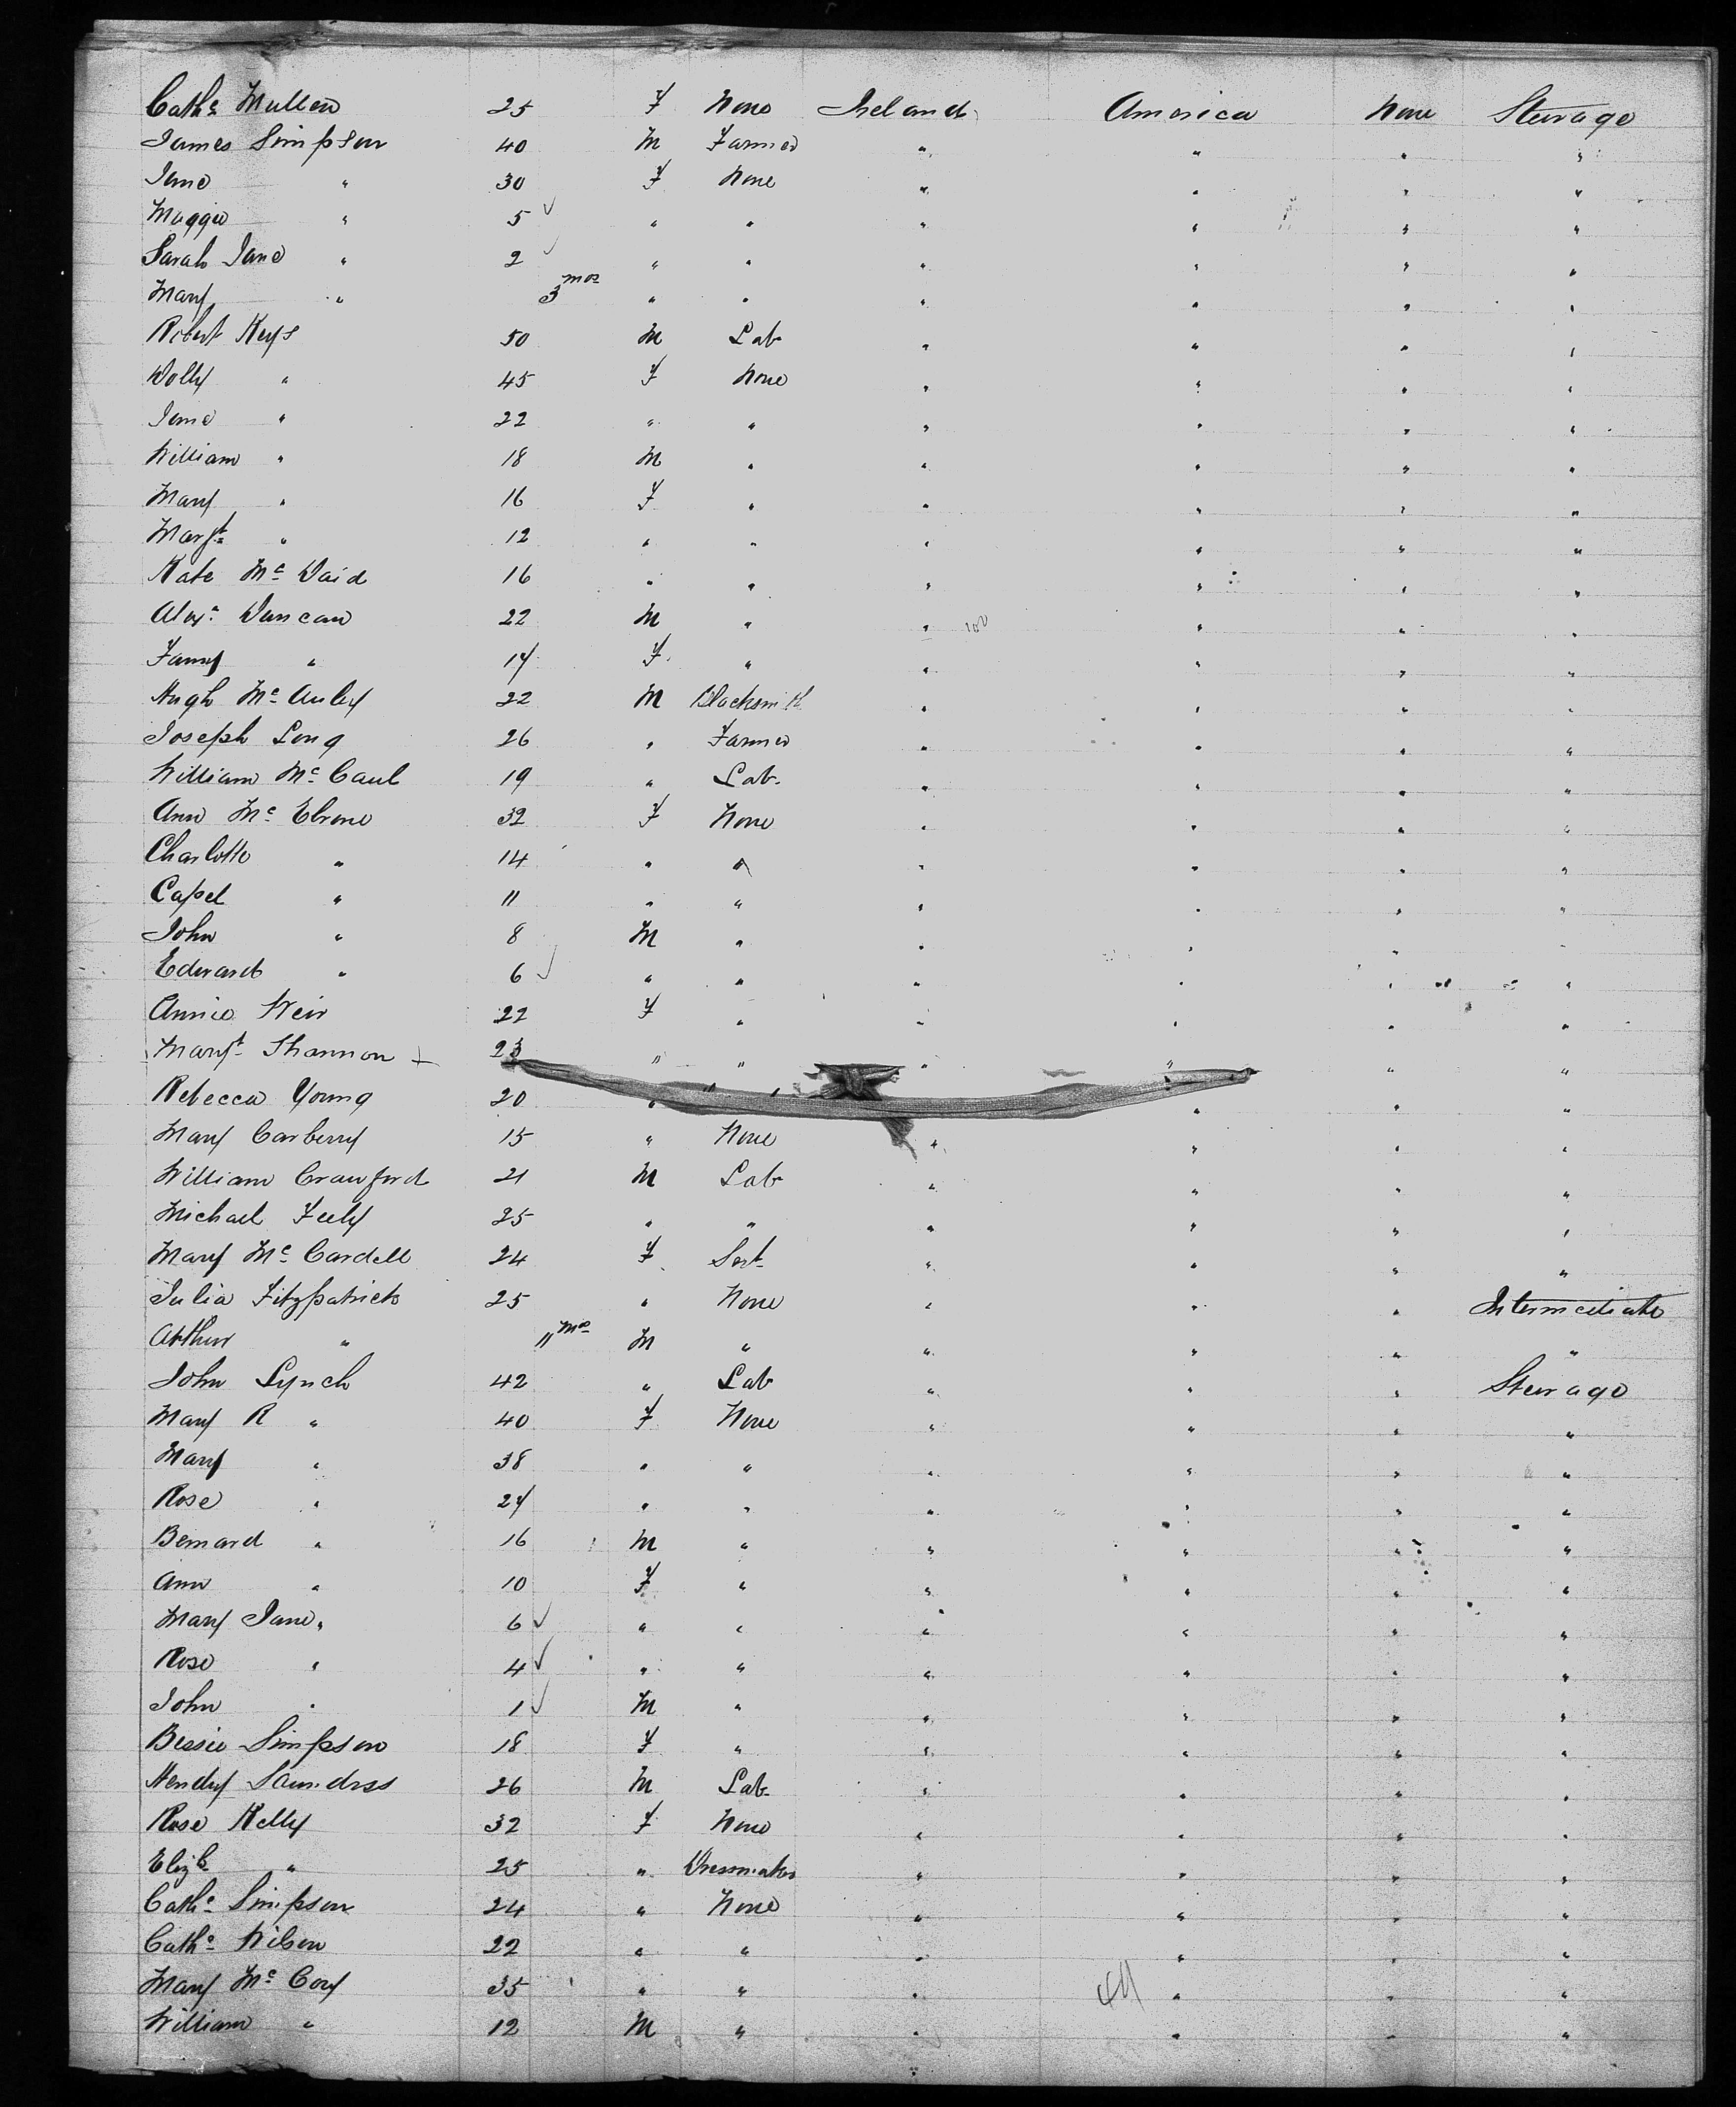 Cathe Mullen 25 F None Ireland America None Steerage
James Simpson 40 M Farmer " " " "
Jane " 30 F None " " " "
Maggie " 5 " " " " " "
Sarah Jane " 2 " " " " " "
Mary " 3 mos " " " " " "
Robert Keys 50 M Lab " " " "
Dolly " 45 F None " " " "
Jane " 22 " " " " " "
William " 18 M " " " " "
Mary " 16 F " " " " "
Margt " 12 " " " " " "
Kate Mc Daid 16 " " " " " "
Alexr Duncan 22 M " " " " "
Fanny " 14 F " " " " "
Hugh Mc Auley 22 M Blacksmith " " " "
Joseph Long 26 " Farmer " " " "
William Mc Caul 19 " Lab. " " " "
Ann Mc Elrone 32 F None " " " "
Charlotte " 14 " " " " " "
Capel " 11 " " " " " "
John " 8 M " " " " "
Edward " 6 " " " " " "
Annie Weir 22 F " " " " "
Margt Shannon 23 " " " " " "
Rebecca Young 20 " " " " "
Mary Carberry 15 " None " " " "
William Crawford 21 M Lab " " " "
Michael Feely 25 " " " " " "
Mary Mc Cardell 24 F Sert " " " "
Julia Fitzpatrick 25 " None " " " Intermediate
Arthur " 11 Mos M " " " " "
John Lynch 42 " Lab " " " Steerage
Mary R " 40 F None " " " "
Mary " 38 " " " " " "
Rose " 24 " " " " " "
Bernard " 16 M " " " " "
Ann " 10 F " " " " "
Mary Jane " 6 " " " " " "
Rose " 4 " " " " " "
John " 1 M " " " " "
Bessie Simpson 18 F " " " " "
Hendry Saunders 26 M Lab " " " "
Rose Kelly 32 F None " " " "
Elizb " 25 " Dressmaker " " " "
Cathe Simpson 24 " None " " " "
Cathe Wilson 22 " " " " " "
Mary Mc Coy 35 " " " " " "
William " 12 M " " " " "